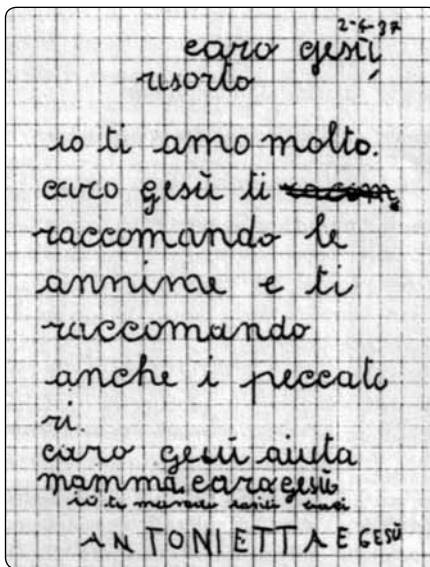 2-4-37
caro gesù
risorto
io ti amo molto.
caro gesù ti racom
raccomando le
annime e ti
raccomando
anche i peccato
ri.
caro gesù aiuta
mamma. cara gesù
io ti mando baci
ANTONIETTA E GESÙ